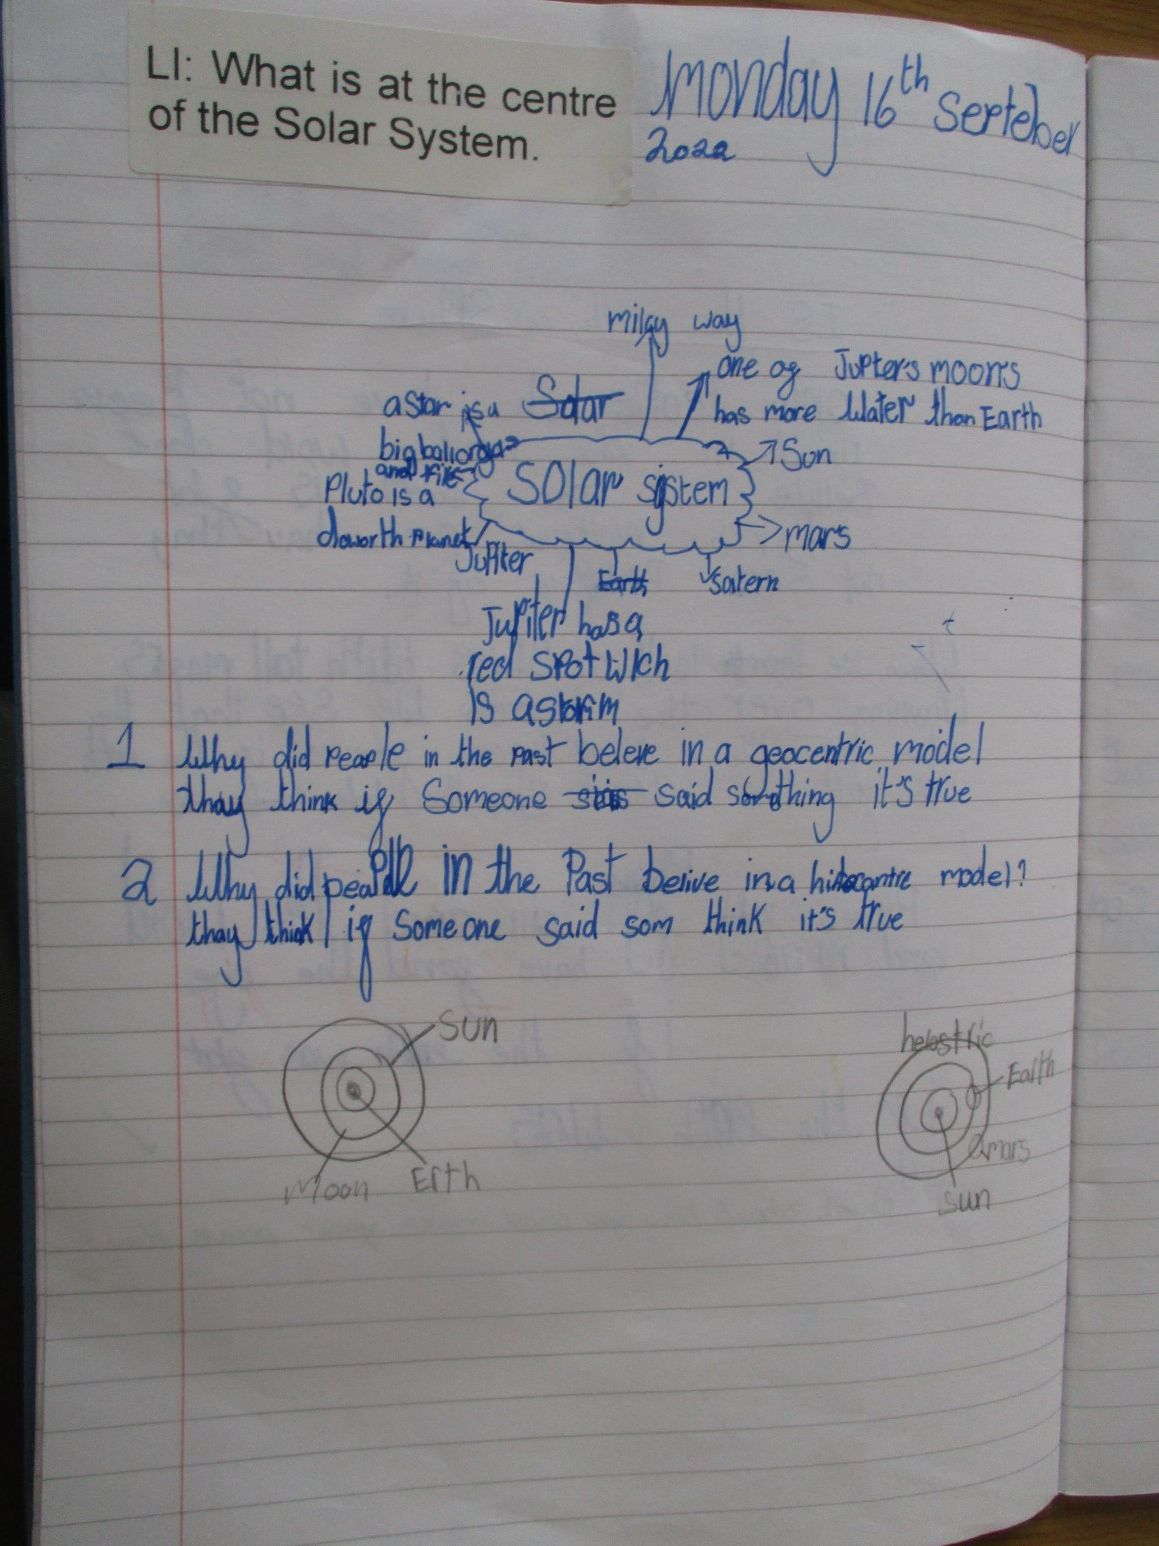 LI: What is at the centre
of the Solar System.
Monday 16th Septeber
2022
milky way
one of Jupters moons
has more Water than Earth
a star is a Solar
big ball of gas
and fire
Sun
SOlar system
Pluto is a
doworth Planet
mars
Jupiter
Earth
Satern
Jupiter has a
red spot wich
is a storim
1 Why did people in the past beleve in a geocentric model
thay think if Someone said something it's true
2 Why did people in the Past belive in a model?
thay think if Someone said som think it's true
Sun
Moon
Erth
helostric
Earth
mars
Sun